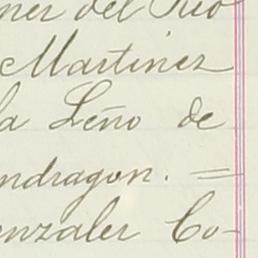 ner del Rio
Martinez
la Leño de
ndragon. =
nzalez Co-